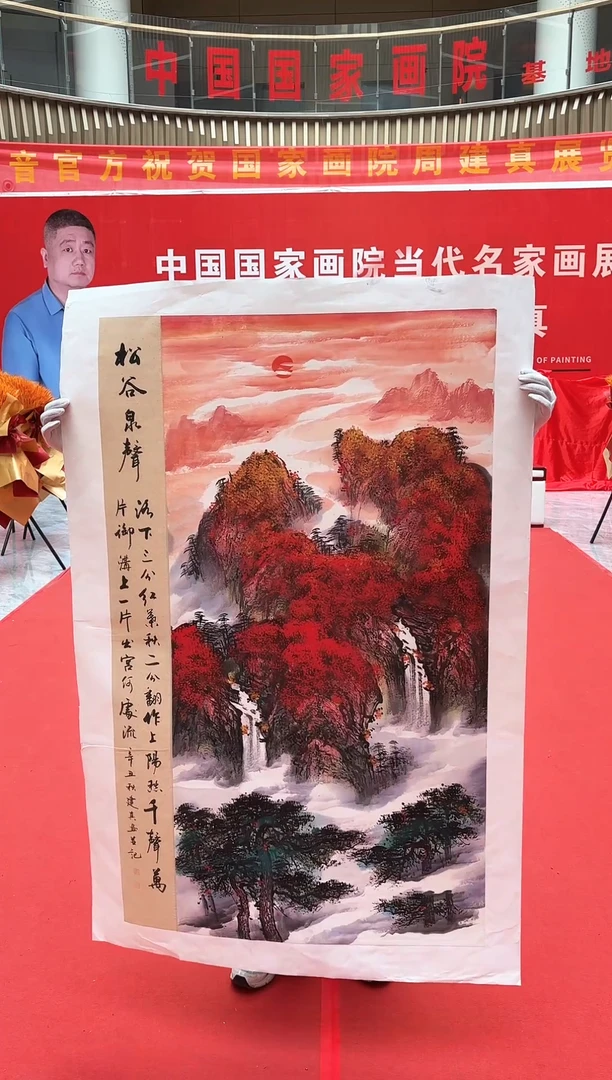 中国国家画院基地
音官方祝贺国家画院周建真展览
中国国家画院当代名家画展
真
OF PAINTING
松谷泉聲
洛下三分红葉秋二分翻作上陽愁千聲萬
片御溝上一片出宮何處流辛丑秋建真畫并記